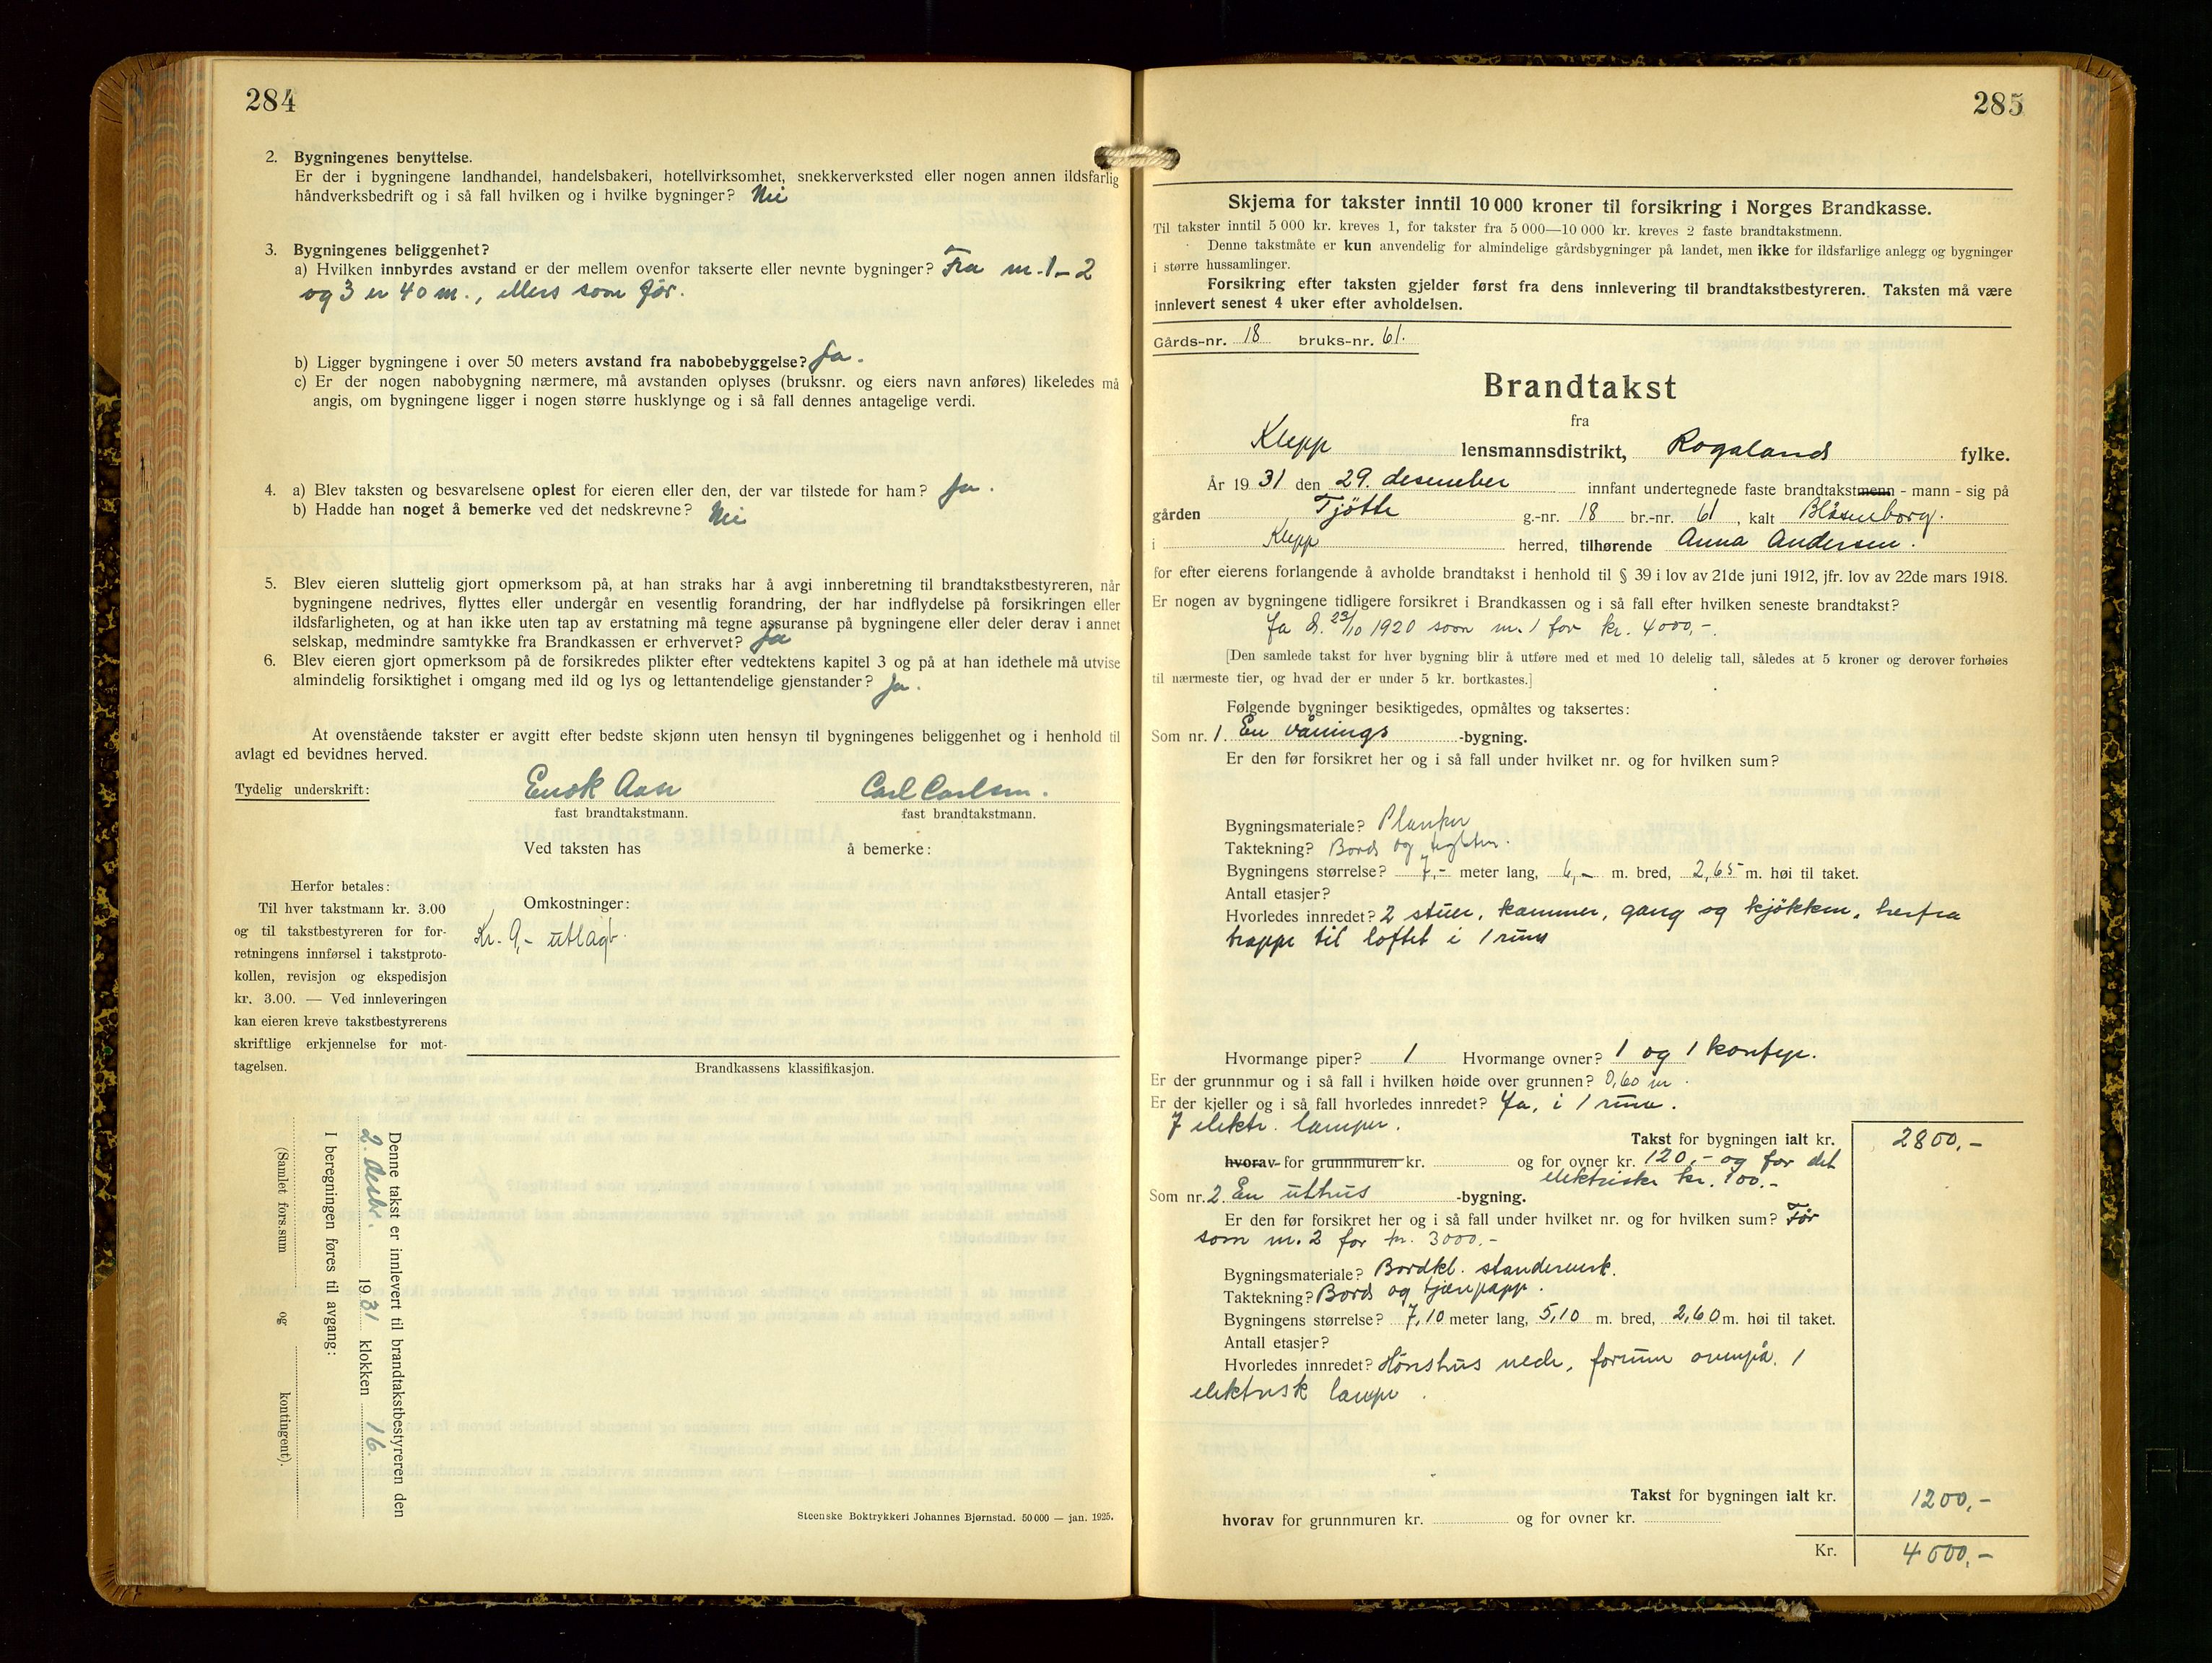 284
2. Bygningenes benyttelse.
Er der i bygningene landhandel, handelsbakeri, hotellvirksomhet, snekkerverksted eller nogen annen ildsfarlig
håndverksbedrift og i så fall hvilken og i hvilke bygninger? Nei
3. Bygningenes beliggenhet?
a) Hvilken innbyrdes avstand er der mellem ovenfor takserte eller nevnte bygninger? Fra nr. 1-2
og 3 er 40 m., ellers som før.
b) Ligger bygningene i over 50 meters avstand fra nabobebyggelse? Ja.
c) Er der nogen nabobygning nærmere, må avstanden oplyses (bruksnr. og eiers navn anføres) likeledes må
angis, om bygningene ligger i nogen større husklynge og i så fall dennes antagelige verdi.
4. a) Blev taksten og besvarelsene oplest for eieren eller den, der var tilstede for ham? Ja.
b) Hadde han noget å bemerke ved det nedskrevne? Nei
5. Blev eieren sluttelig gjort opmerksom på, at han straks har å avgi innberetning til brandtakstbestyreren, når
bygningene nedrives, flyttes eller undergår en vesentlig forandring, der har indflydelse på forsikringen eller
ildsfarligheten, og at han ikke uten tap av erstatning må tegne assuranse på bygningene eller deler derav i annet
selskap, medmindre samtykke fra Brandkassen er erhvervet? Ja
6. Blev eieren gjort opmerksom på de forsikredes plikter efter vedtektens kapitel 3 og på at han idethele må utvise
almindelig forsiktighet i omgang med ild og lys og lettantendelige gjenstander? Ja.
At ovenstående takster er avgitt efter bedste skjønn uten hensyn til bygningenes beliggenhet og i henhold til
avlagt ed bevidnes herved.
Tydelig underskrift: Enok Aase Carl Carlsen.
fast brandtakstmann. fast brandtakstmann.
Ved taksten has å bemerke:
Herfor betales:
Til hver takstmann kr. 3.00
og til takstbestyreren for for-
retningens innførsel i takstproto-
kollen, revisjon og ekspedisjon
kr. 3.00. — Ved innleveringen
kan eieren kreve takstbestyrerens
skriftlige erkjennelse for mot-
tagelsen.
Omkostninger:
Kr. 9,- utlagt.
Brandkassens klassifikasjon.
Denne takst er innlevert til brandtakstbestyreren den
2. desbr. 1931 klokken 16.
I beregningen føres til avgang:
(Samlet fors.sum og kontingent).
Steenske Boktrykkeri Johannes Bjørnstad. 50 000 — jan. 1925.
285
Skjema for takster inntil 10 000 kroner til forsikring i Norges Brandkasse.
Til takster inntil 5 000 kr. kreves 1, for takster fra 5 000—10 000 kr. kreves 2 faste brandtakstmenn.
Denne takstmåte er kun anvendelig for almindelige gårdsbygninger på landet, men ikke for ildsfarlige anlegg og bygninger
i større hussamlinger.
Forsikring efter taksten gjelder først fra dens innlevering til brandtakstbestyreren. Taksten må være
innlevert senest 4 uker efter avholdelsen.
Gårds-nr. 18 bruks-nr. 61.
Brandtakst
fra
Klepp lensmannsdistrikt, Rogalands fylke.
År 1931 den 29. desember innfant undertegnede faste brandtakstmenn - mann - sig på
gården Tjøtte g.-nr. 18 br.-nr. 61, kalt Blåsenborg.
i Klepp herred, tilhørende Anna Andersen.
for efter eierens forlangende å avholde brandtakst i henhold til § 39 i lov av 21de juni 1912, jfr. lov av 22de mars 1918.
Er nogen av bygningene tidligere forsikret i Brandkassen og i så fall efter hvilken seneste brandtakst?
Ja d. 23/10 1920 som nr. 1 for kr. 4000,-.
[Den samlede takst for hver bygning blir å utføre med et med 10 delelig tall, således at 5 kroner og derover forhøies
til nærmeste tier, og hvad der er under 5 kr. bortkastes.]
Følgende bygninger besiktigedes, opmåltes og taksertes:
Som nr. 1. En vånings -bygning.
Er den før forsikret her og i så fall under hvilket nr. og for hvilken sum?
Bygningsmateriale? Planker
Taktekning? Bord og teglsten.
Bygningens størrelse? 7,- meter lang, 6,- m. bred, 2,65 m. høi til taket.
Antall etasjer?
Hvorledes innredet? 2 stuer, kammer, gang og kjøkken, herfra
trappe til loftet i 1 rum
Hvormange piper? 1 Hvormange ovner? 1 og 1 komfyr.
Er der grunnmur og i så fall i hvilken høide over grunnen? 0,60 m.
Er der kjeller og i så fall hvorledes innredet? Ja, i 1 rum.
7 elektr. lamper.
Takst for bygningen ialt kr. 2800,-
hvorav for grunnmuren kr. og for ovner kr. 120,- og for det
elektriske kr. 100.-
Som nr. 2. En uthus -bygning.
Er den før forsikret her og i så fall under hvilket nr. og for hvilken sum? Før
som nr. 2 for kr. 3000.-
Bygningsmateriale? Bordkl. standerverk.
Taktekning? Bord og tjærepapp.
Bygningens størrelse? 7,10 meter lang, 5,10 m. bred, 2,60 m. høi til taket.
Antall etasjer?
Hvorledes innredet? Hønsehus nede, forrum ovenpå. 1
elektrisk lampe.
Takst for bygningen ialt kr. 1200,-
hvorav for grunnmuren kr. og for ovner kr.
Kr. 4000,-